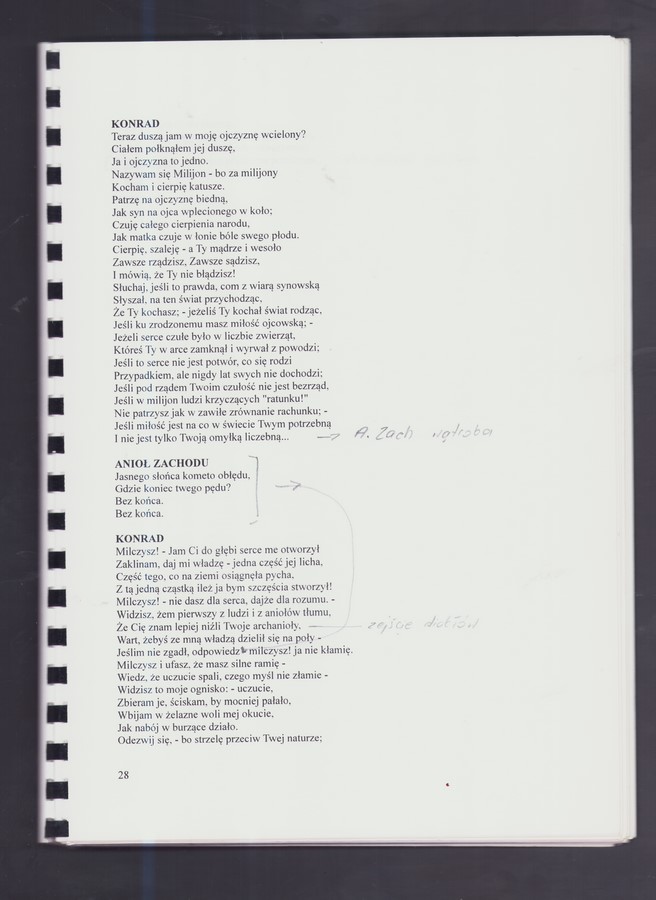 KONRAD
Teraz duszą jam w moję ojczyznę wcielony?
Ciałem połknąłem jej duszę,
Ja i ojczyzna to jedno.
Nazywam się Milijon - bo za milijony
Kocham i cierpię katusze.
Patrzę na ojczyznę biedną,
Jak syn na ojca wplecionego w koło;
Czuję całego cierpienia narodu,
Jak matka czuje w łonie bóle swego płodu.
Cierpię, szaleję - a Ty mądrze i wesoło
Zawsze rządzisz, Zawsze sądzisz,
I mówią, że Ty nie błądzisz!
Słuchaj, jeśli to prawda, com z wiarą synowską
Słyszał, na ten świat przychodząc,
Że Ty kochasz; - jeżeliś Ty kochał świat rodząc,
Jeśli ku zrodzonemu masz miłość ojcowską; -
Jeżeli serce czułe było w liczbie zwierząt,
Któreś Ty w arce zamknął i wyrwał z powodzi;
Jeśli to serce nie jest potwór, co się rodzi
Przypadkiem, ale nigdy lat swych nie dochodzi;
Jeśli pod rządem Twoim czułość nie jest bezrząd,
Jeśli w milijon ludzi krzyczących "ratunku!"
Nie patrzysz jak w zawiłe zrównanie rachunku; -
Jeśli miłość jest na co w świecie Twym potrzebną
I nie jest tylko Twoją omyłką liczebną... → A. Zach wątroba
ANIOŁ ZACHODU
Jasnego słońca kometo obłędu,
Gdzie koniec twego pędu?
Bez końca.
Bez końca.
KONRAD
Milczysz! - Jam Ci do głębi serce me otworzył
Zaklinam, daj mi władzę - jedna część jej licha,
Część tego, co na ziemi osiągnęła pycha,
Z tą jedną cząstką ileż ja bym szczęścia stworzył!
Milczysz! - nie dasz dla serca, dajże dla rozumu. -
Widzisz, żem pierwszy z ludzi i z aniołów tłumu,
Że Cię znam lepiej niźli Twoje archanioły, zejście aniołów
Wart, żebyś ze mną władzą dzielił się na poły -
Jeślim nie zgadł, odpowiedz milczysz! ja nie kłamię.
Milczysz i ufasz, że masz silne ramię -
Wiedz, że uczucie spali, czego myśl nie złamie -
Widzisz to moje ognisko: - uczucie,
Zbieram je, ściskam, by mocniej pałało,
Wbijam w żelazne woli mej okucie,
Jak nabój w burzące działo.
Odezwij się, - bo strzelę przeciw Twej naturze;
28